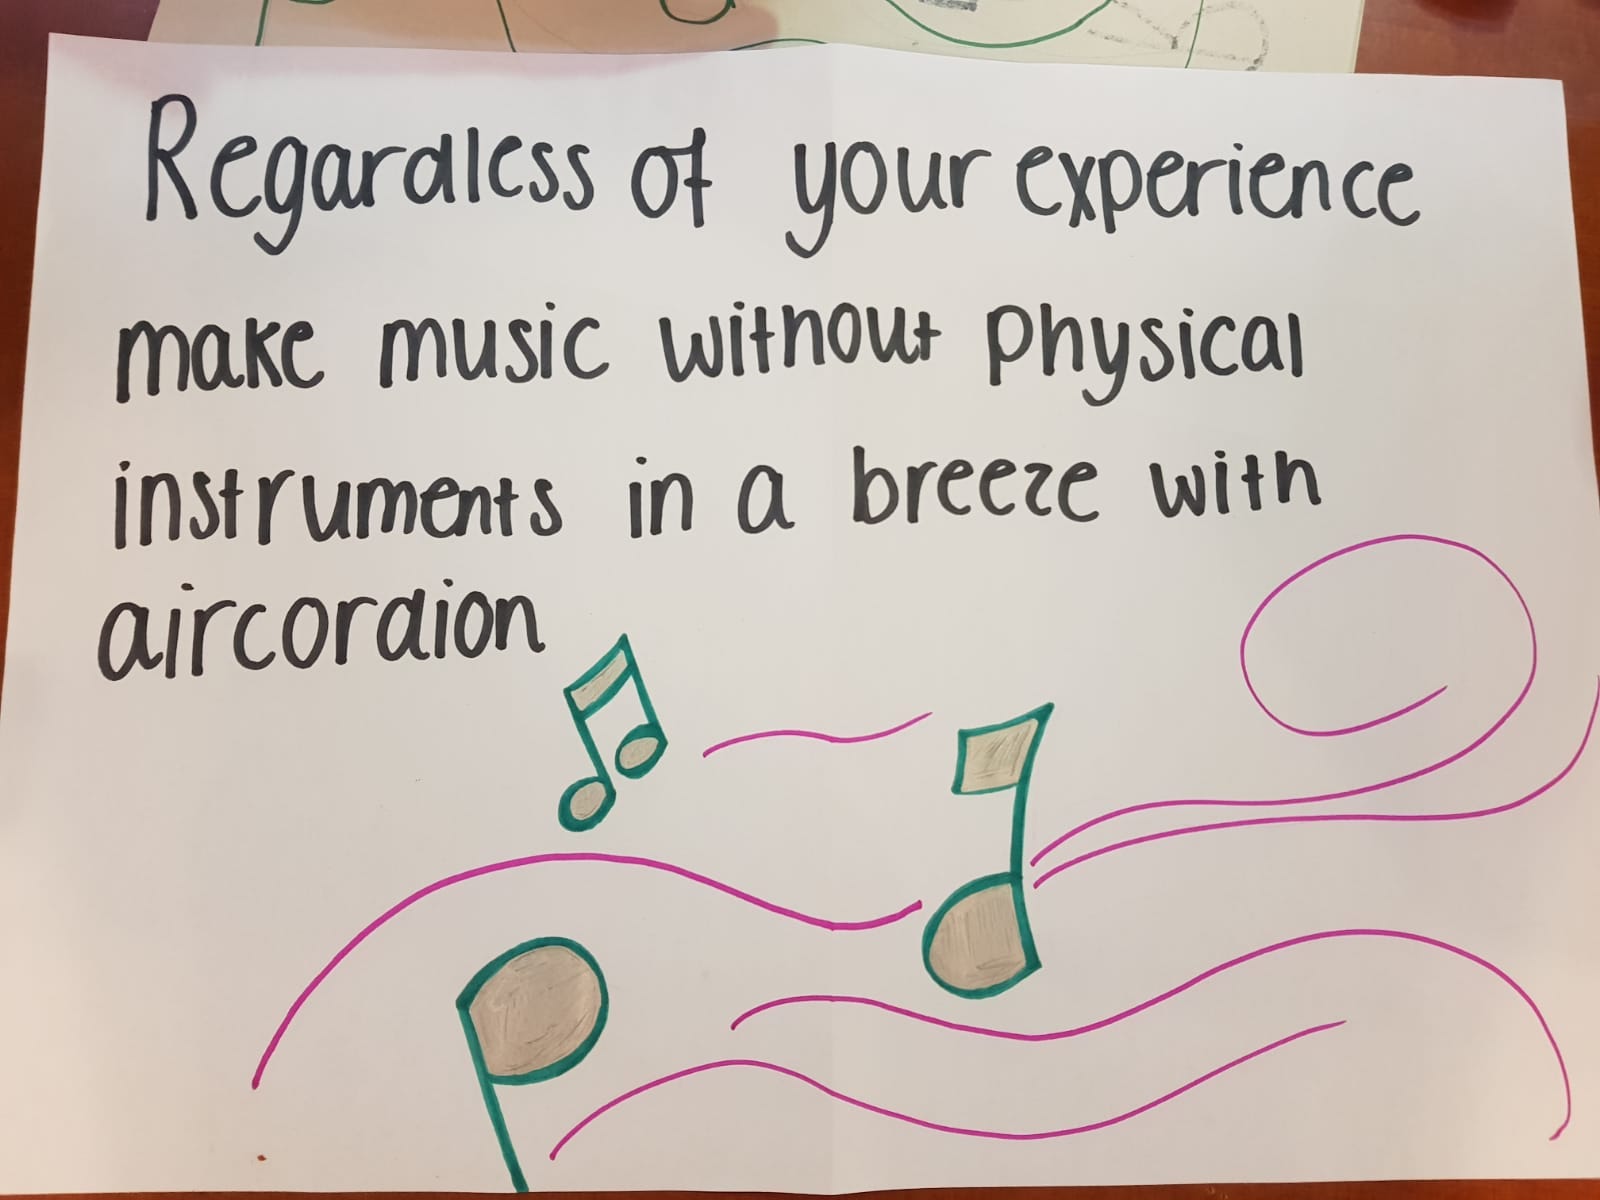 Regardless of your experience
make music without physical
instruments in a breeze with
aircordion